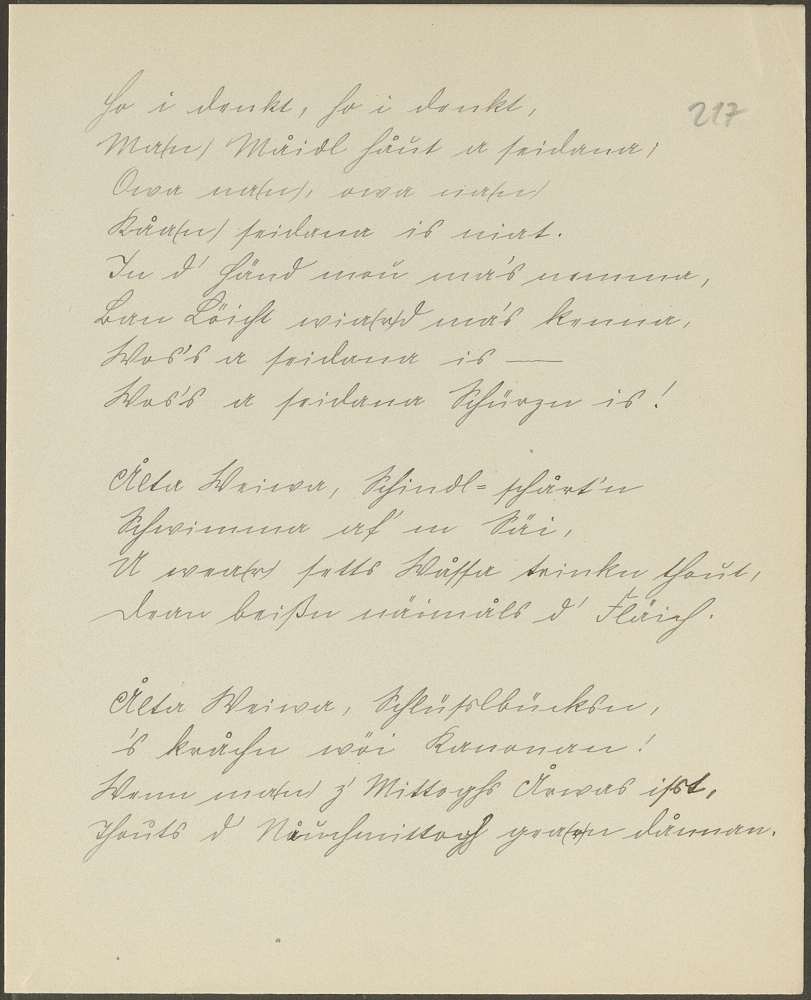 217
Ho i denkt, ho i denkt,
Ma(n) Måidl håut a seidana;
Owa na(n), owa na(n)
Kåa(n) seidana is niat.
In d' Händ mou ma's nemma,
Ban Löicht wia(r)d ma's kenna,
Wos's a seidana is —
Wos's a seidana Schürzn is!
Ålta Weiwa, Schindl-schårt'n
Schwimma af' m Säi,
U wea(r) setts Wåssa trinkn thout,
Dean beißn näimåls d' Fläich.
Ålta Weiwa, Schlüsslbücksn,
's kråchn wöi Kanonan!
Wenn ma(n) z' Mittoghs Årwas isst,
Thouts d' Nåuchmittogh gea(r)n dånnan.